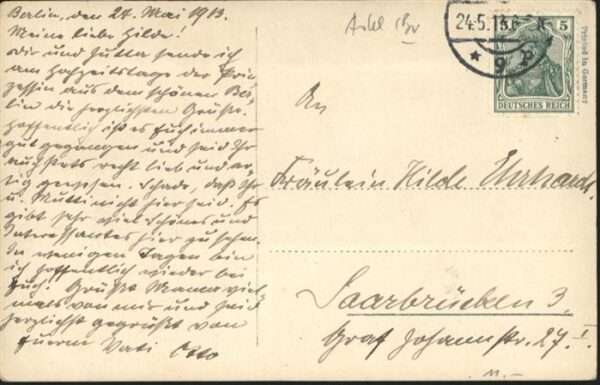 Berlin, den 24. Mai 1913.
Meine liebe Hilde!
Dir und Jutta sende ich
am Hochzeitstage der Prin-
zessin aus dem schönen Ber-
lin die herzlichsten Grüße.
Hoffentlich ist es Euch immer
gut gegangen und seid Ihr
auch stets recht lieb und ar-
tig gewesen. Schade, daß Ihr
u. Mutti nicht hier seid. Es
gibt sehr viel Schönes und
Interessantes hier zu sehen.
In wenigen Tagen bin
ich hoffentlich wieder bei
Euch. Grüßt Mama viel-
mals von mir und seid
herzlichst gegrüßt von
Euerm Vati Otto
24.5.13.6
* 9 P
5 5
DEUTSCHES REICH
Printed in Germany
An
Fräulein Hilde Ehrhardt.
Saarbrücken 3,
Graf Johannstr. 27 I